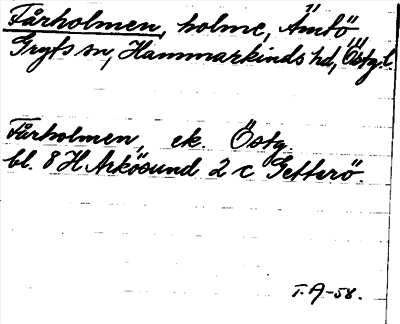 Fårholmen, holme, Ämtö
Gryts sn, Hammarkinds hd, Östg.l.
Fårholmen, ek. Östg.
bl. 8 H Arkösund 2 c Getterö.
T.A-58.